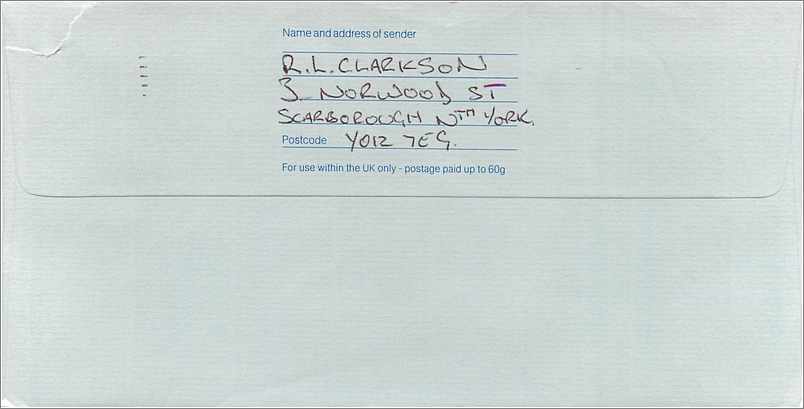 Name and address of sender
R.L. CLARKSON
3 NORWOOD ST
SCARBOROUGH NTH YORK.
Postcode YO12 7EG.
For use within the UK only - postage paid up to 60g